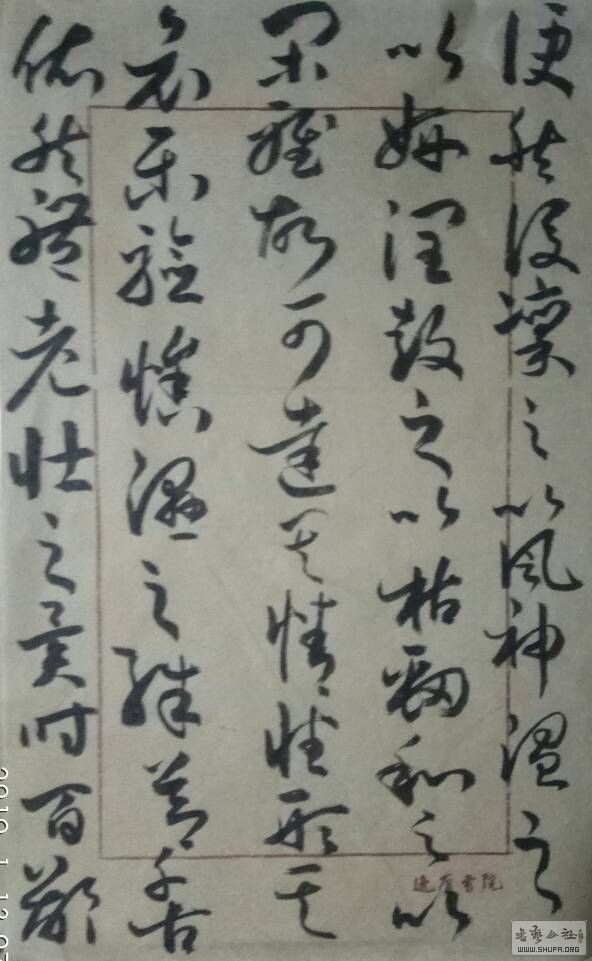 便然後凜之以風神溫之
以妍潤鼓之以枯勁和之以
閑雅故可達其情性形其
哀樂驗燥濕之殊節千古
依然體老壯之異時百齡
書院
WWW.SHUFA.ORG